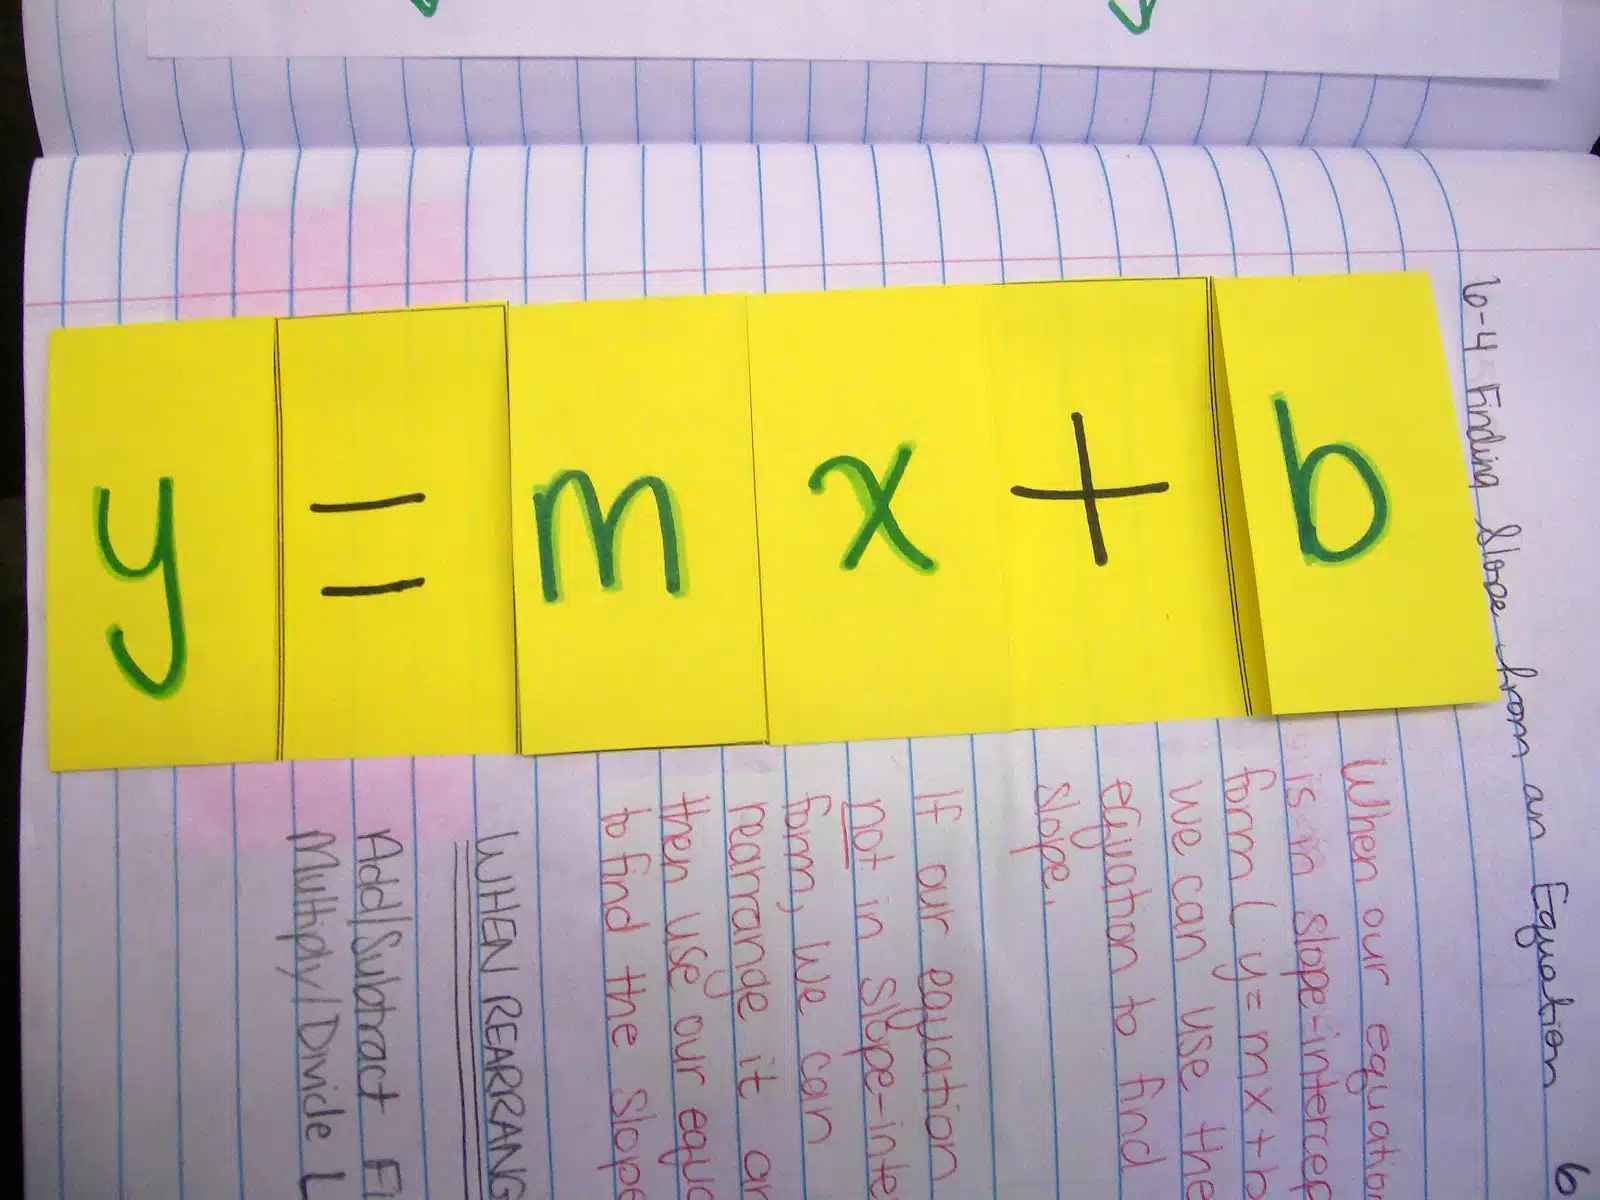 y = m x + b
6-4 Finding Slope from an Equation
6
When our equation
is in slope-intercep
form ( y = mx + b
we can use the
equation to find
slope.
If our equation
not in slope-inte
form, we can
rearrange it an
then use our equa
to find the slope
WHEN REARRANG
Add/Subtract Fi
Multiply/Divide L